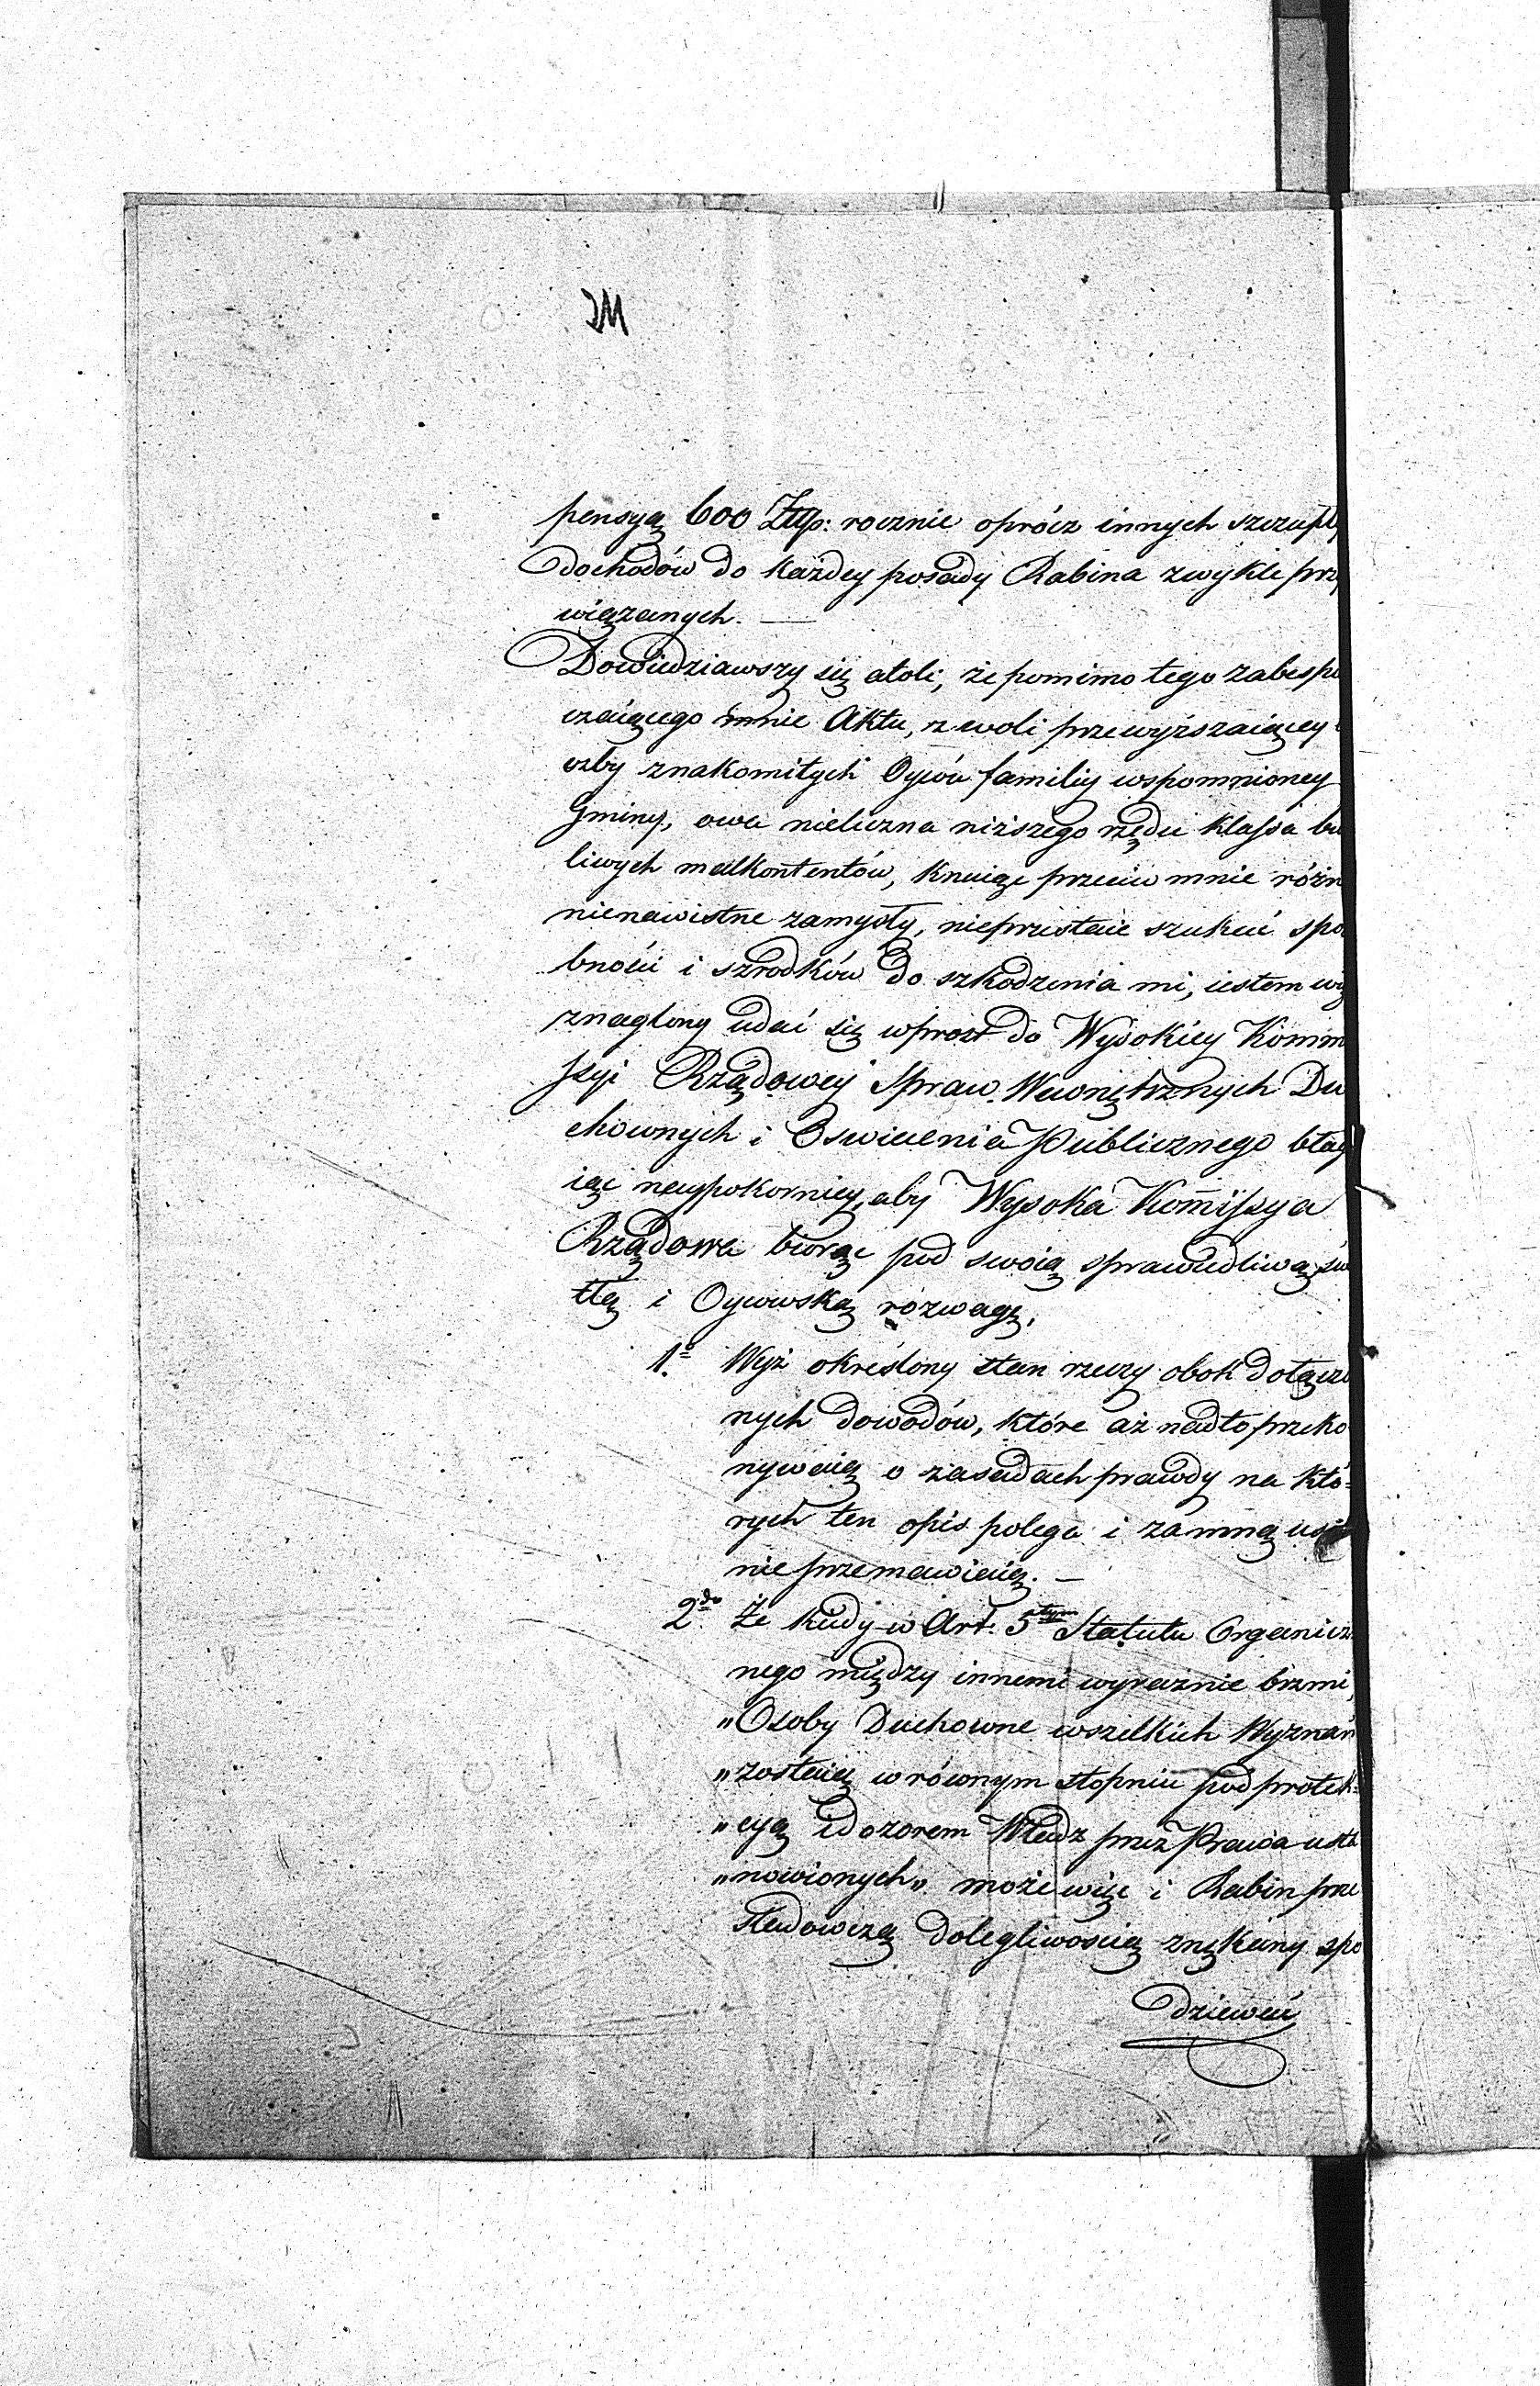 pensyą 600 Złtp: rocznie oprócz innych szczupł
dochodów do każdey posady Rabina zwykle prz
wiązanych. —
Dowiedziawszy się atoli, że pomimo tego zabespie
czaiącego mnie Aktu, z woli przewyższaiącey
czby znakomitych Oyców familiy wspomnioney
Gminy, owa nieliczna niższego rzędu klassa bu
liwych malkontentów, knuiąc przeciw mnie różn
nienawistne zamysły, nieprzestaie szukać spo
bności i szrodków do szkodzenia mi, iestem wię
znaglony udać się wprost do Wysokiey Kommi
ssyi Rządowey Spraw Wewnętrznych Du
chownych i Oswiecenia Publicznego błag
iąc naypokorniey, aby Wysoka Kom̄issya
Rządowa biorąc pod swoią sprawiedliwą, świ
tłą i Oycowską rozwagę,
1.º Wyż określony stan rzeczy obok dołącze
nych dowodów, które aż nadto przeko
nywaią o zasadach prawdy na któ=
rych ten opis polega i zamną usil
nie przemawiaią. —
2.do Że kiedy w Art: 5tym Statutu Organicz
nego między innemi wyraznie brzmi,
„Osoby Duchowne wszelkich Wyznań
„zostaią w równym stopniu pod protek=
„cyą i dozorem Władz przez Prawa usta
„nowionych„ może więc i Rabin prze
sladowczą dolegliwoscią znękany spo
dziewać